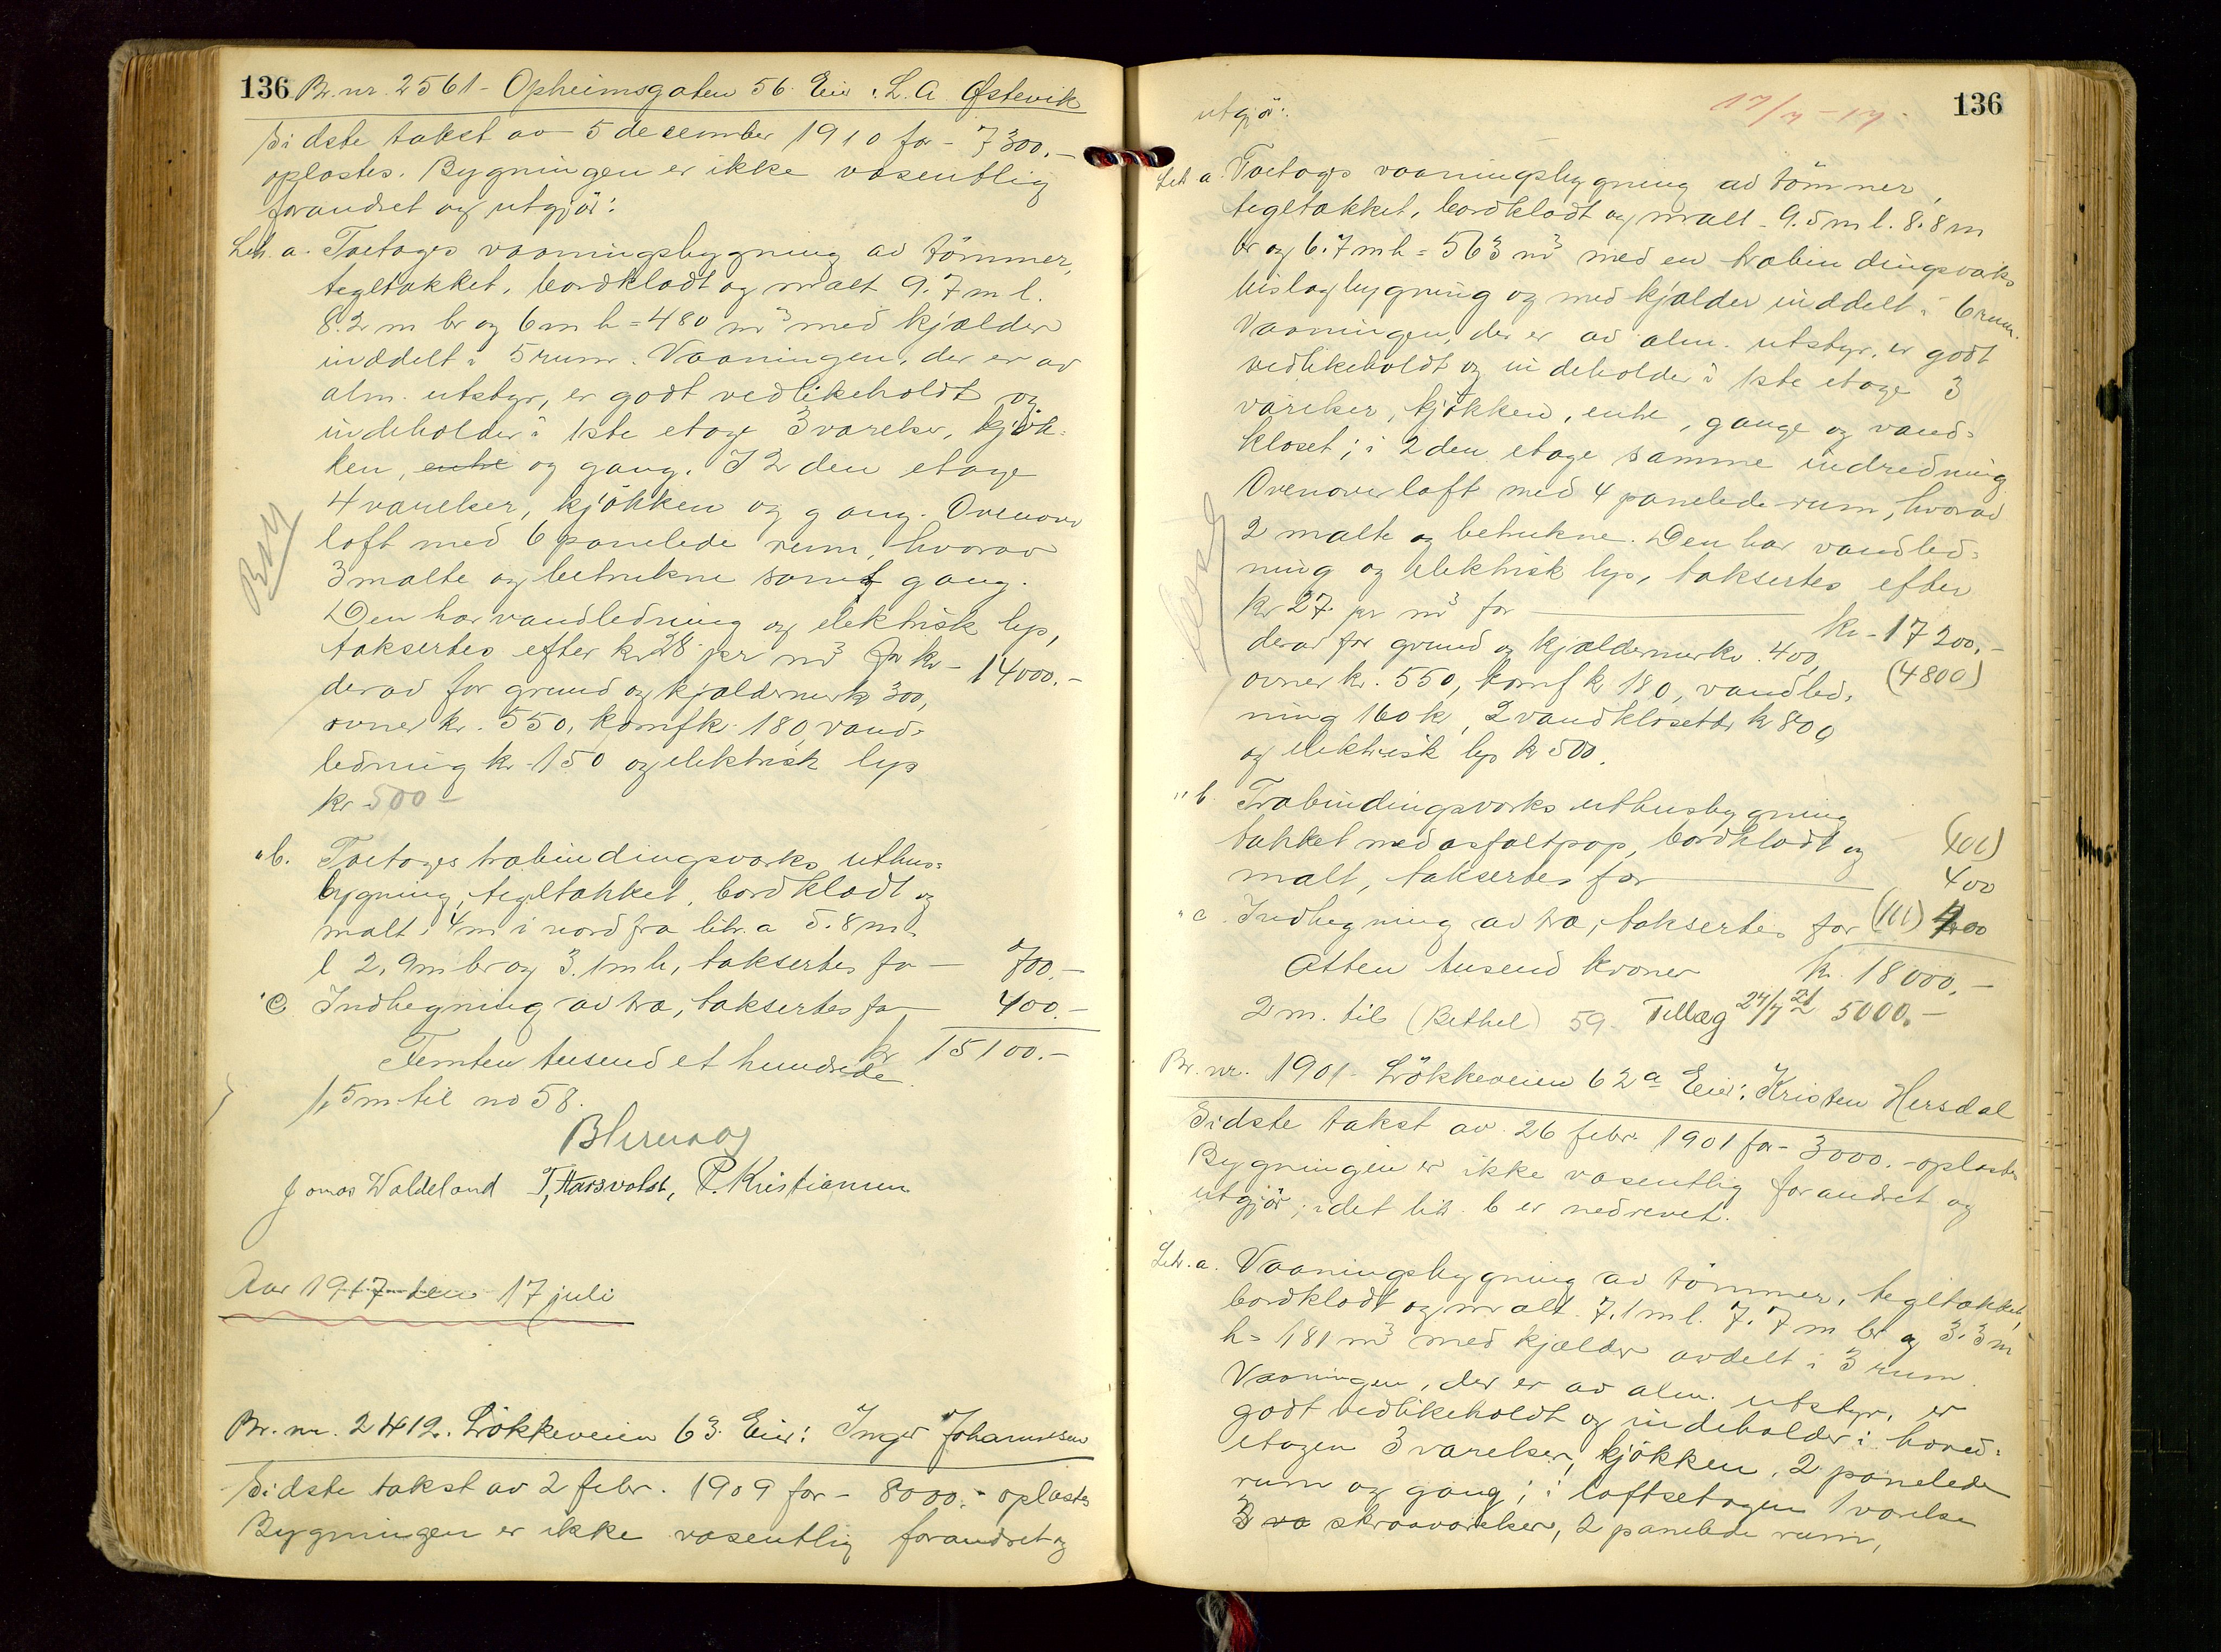 136 Br. nr. 2561 - Opheimsgaten 56. Eier: L. A. Østevik
Sidste takst av 5 december 1910 for - 7300.-
oplæstes. Bygningen er ikke væsentlig
forandret og utgjör:
Litr. a. Toetages vaaningsbygning av tömmer,
tegltækket, bordklædt og malt 9.7 m l.
8.2 m br og 6 m h = 480 m³ med kjælder
inddelt i 5 rum. Vaaningen, der er av
alm. utstyr, er godt vedlikeholdt og
indeholder i 1ste etage 3 værelser, kjök-
ken, entre og gang. I 2den etage
4 værelser, kjökken og gang. Ovenover
loft med 6 panelede rum, hvorav
3 malte og betrukne samt gang.
Den har vandledning og elektrisk lys,
taksertes efter kr 28 pr m³ for kr - 14000.-
derav for grund og kjældermurk 300,
ovner kr. 550, komf kr. 180, vand-
ledning kr - 150 og elektrisk lys
kr 500 -
" b. Toetages træbindingsværks uthus-
bygning, tegltækket, bordklædt og
malt, 4 m i nord fra litr. a 5.8 m
l 2,9 m br og 3.1 m h, taksertes for - 700.-
" c Indhegning av træ, taksertes for - 400.-
Femten tusend et hundrede kr 15100.-
1,5 m til no 58.
Jonas Waldeland T. Aarsvolst, P. Kristiansen
Aar 1917 den 17 juli
Br. nr. 2412. Lökkeveien 63. Eier: Inger Johannesen
Sidste takst av 2 febr. 1909 for - 8000.- oplæstes
Bygningen er ikke væsentlig forandret og
17/7 - 17. 136
utgjör:
Litr a. Toetages vaaningsbygning av tömmer,
tegltækket, bordklædt og malt - 9.5 m l. 8.8 m
br og 6.7 m h = 563 m³ med en træbindingsværks
bislagbygning og med kjælder inddelt i 6 rum.
Vaaningen, der er av alm. utstyr, er godt
vedlikeholdt og indeholder i 1ste etage 3
værelser, kjökken, entre, gange og vand-
kloset; i 2den etage samme indredning
Ovenover loft med 4 panelede rum, hvorav
2 malte og betrukne. Den har vandled-
ning og elektrisk lys, taksertes efter
kr 27. pr m³ for kr - 17200.-
derav for grund og kjældermurkr. 400, (4800)
ovner kr. 550, komf kr 180, vandled-
ning 160 kr, 2 vandklosetter kr 800
og elektrisk lys kr 500.
" b. Træbindingsværks uthusbygning
tækket med asfaltpap, bordklædt og
malt, taksertes for 400
" c. Indhegning av træ, taksertes for 400
Atten tusend kroner kr. 18000.-
2 m. til (Bethel) 59. Tillæg 27/7 21 5000.-
Br. nr. 1901 - Lökkeveien 62a Eier: Kristen Hersdal
Sidste takst av 26 febr. 1901 for - 3000.- oplæstes
Bygningen er ikke væsentlig forandret og
utgjör; idet litr. b er nedrevet.
Litr. a. Vaaningsbygning av tömmer, tegltækket,
bordklædt og malt. 7.1 m l. 7.7 m br og 3.3 m
h = 181 m³ med kjælder avdelt i 3 rum.
Vaaningen, der er av alm. utstyr, er
godt vedlikeholdt og indeholder i hoved-
etagen 3 værelser, kjökken, 2 panelede
rum og gang; i loftsetagen 1 værelse
3 væ skraaværelser, 2 panelede rum,